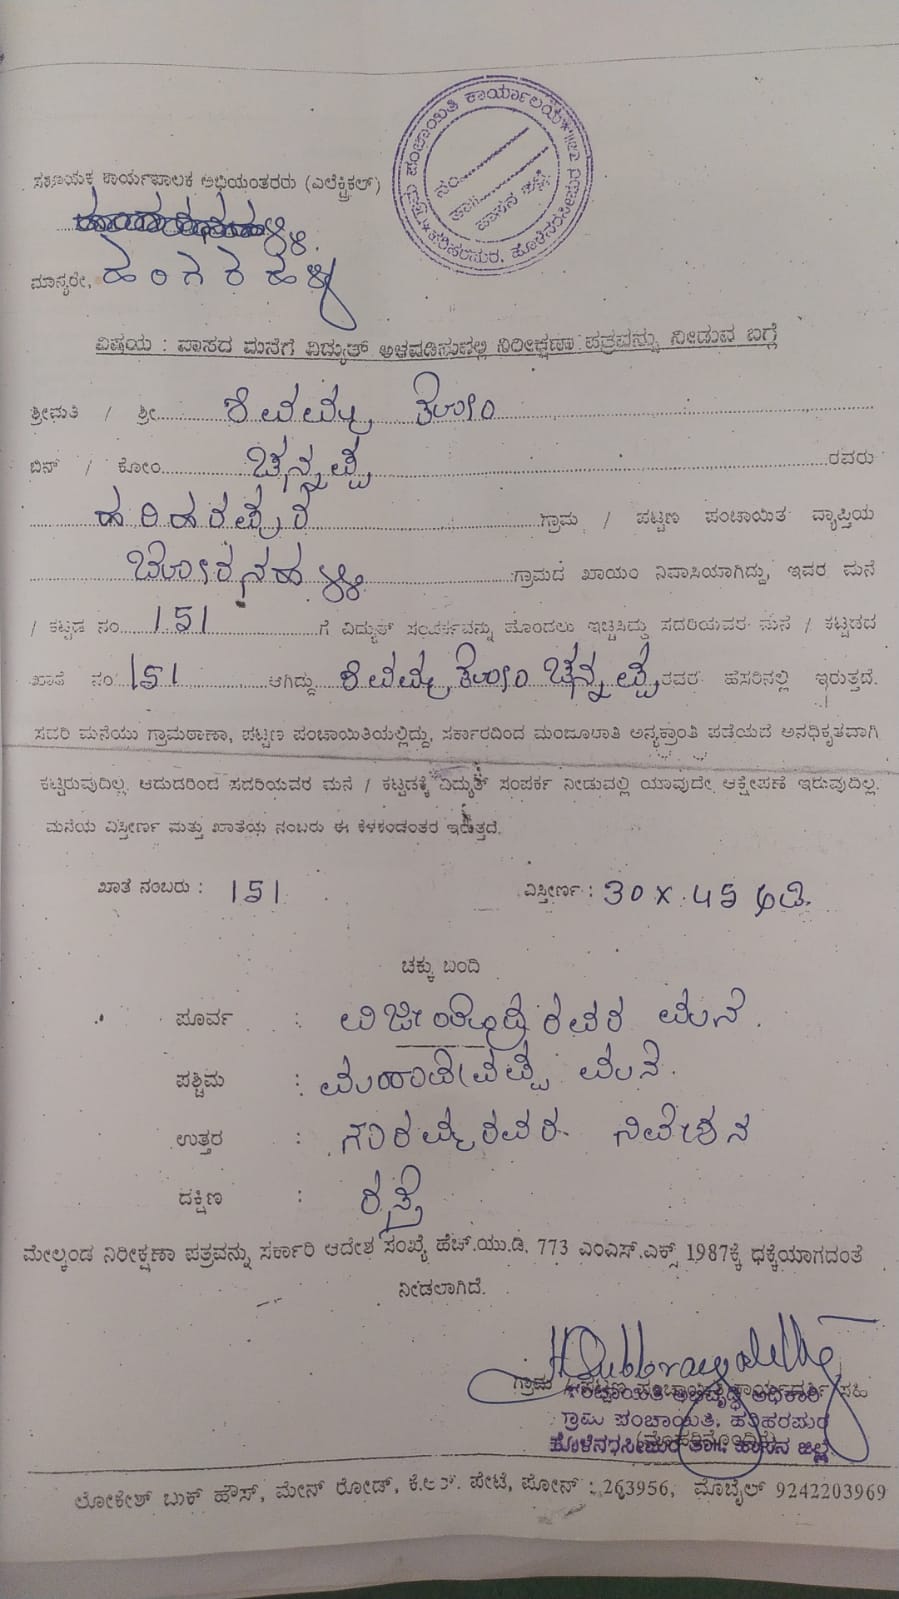 ಗ್ರಾಮ ಪಂಚಾಯಿತಿ ಕಾರ್ಯಾಲಯ * ಹರಿಹರಪುರ, ಹೊಳೆನರಸೀಪುರ ತಾ||
ನಂ
ತಾ||
ಹಾಸನ ಜಿಲ್ಲೆ
ಸಹಾಯಕ ಕಾರ್ಯಪಾಲಕ ಅಭಿಯಂತರರು (ಎಲೆಕ್ಟ್ರಿಕಲ್)
ಮಾನ್ಯರೇ, ಹಂಗರಹಳ್ಳಿ
ವಿಷಯ : ವಾಸದ ಮನೆಗೆ ವಿದ್ಯುತ್ ಅಳವಡಿಸುವಲ್ಲಿ ನಿರೀಕ್ಷಣಾ ಪತ್ರವನ್ನು ನೀಡುವ ಬಗ್ಗೆ
ಶ್ರೀಮತಿ / ಶ್ರೀ ಕೋಂ
ಬಿನ್ / ಕೋಂ ಚನ್ನಪ್ಪ ರವರು
ಹರಿಹರಪುರ ಗ್ರಾಮ / ಪಟ್ಟಣ ಪಂಚಾಯಿತ ವ್ಯಾಪ್ತಿಯ
ಬೋರನಹಳ್ಳಿ ಗ್ರಾಮದ ಖಾಯಂ ನಿವಾಸಿಯಾಗಿದ್ದು, ಇವರ ಮನೆ
/ ಕಟ್ಟಡ ನಂ 151 ಗೆ ವಿದ್ಯುತ್ ಸಂಪರ್ಕವನ್ನು ಹೊಂದಲು ಇಚ್ಚಿಸಿದ್ದು ಸದರಿಯವರ ಮನೆ / ಕಟ್ಟಡದ
ಖಾತೆ ನಂ 151 ಆಗಿದ್ದು ಕೋಂ ಚನ್ನಪ್ಪ ರವರ ಹೆಸರಿನಲ್ಲಿ ಇರುತ್ತದೆ.
ಸದರಿ ಮನೆಯು ಗ್ರಾಮಠಾಣಾ, ಪಟ್ಟಣ ಪಂಚಾಯಿತಿಯಲ್ಲಿದ್ದು, ಸರ್ಕಾರದಿಂದ ಮಂಜೂರಾತಿ ಅನ್ಯಕ್ರಾಂತಿ ಪಡೆಯದೆ ಅನಧಿಕೃತವಾಗಿ
ಕಟ್ಟಿರುವುದಿಲ್ಲ. ಆದುದರಿಂದ ಸದರಿಯವರ ಮನೆ / ಕಟ್ಟಡಕ್ಕೆ ವಿದ್ಯುತ್ ಸಂಪರ್ಕ ನೀಡುವಲ್ಲಿ ಯಾವುದೇ ಆಕ್ಷೇಪಣೆ ಇರುವುದಿಲ್ಲ.
ಮನೆಯ ವಿಸ್ತೀರ್ಣ ಮತ್ತು ಖಾತೆಯ ನಂಬರು ಈ ಕೆಳಕಂಡಂತರ ಇರುತ್ತದೆ.
ಖಾತೆ ನಂಬರು : 151 ವಿಸ್ತೀರ್ಣ : 30 x 45 ಅಡಿ.
ಚಕ್ಕು ಬಂದಿ
ಪೂರ್ವ : ರವರ ಮನೆ.
ಪಶ್ಚಿಮ : ಮಹಾದೇವಪ್ಪ ಮನೆ.
ಉತ್ತರ : ನಿವೇಶನ
ದಕ್ಷಿಣ : ರಸ್ತೆ
ಮೇಲ್ಕಂಡ ನಿರೀಕ್ಷಣಾ ಪತ್ರವನ್ನು ಸರ್ಕಾರಿ ಆದೇಶ ಸಂಖ್ಯೆ ಹೆಚ್.ಯು.ಡಿ. 773 ಎಂಎಸ್.ಎಕ್ಸ್ 1987ಕ್ಕೆ ಧಕ್ಕೆಯಾಗದಂತೆ
ನೀಡಲಾಗಿದೆ.
ಗ್ರಾಮ / ಪಟ್ಟಣ ಪಂಚಾಯಿತಿ ಕಾರ್ಯದರ್ಶಿ ಸಹಿ
ಪಂಚಾಯಿತಿ ಅಭಿವೃದ್ಧಿ ಅಧಿಕಾರಿ
ಗ್ರಾಮ ಪಂಚಾಯಿತಿ, ಹರಿಹರಪುರ
(ಮೊಹರಿನೊಂದಿಗೆ)
ಹೊಳೆನರಸೀಪುರ ತಾ|| ಹಾಸನ ಜಿಲ್ಲೆ
ಲೋಕೇಶ್ ಬುಕ್ ಹೌಸ್, ಮೇನ್ ರೋಡ್, ಕೆ.ಆರ್. ಪೇಟೆ, ಪೋನ್ : 263956, ಮೊಬೈಲ್ 9242203969